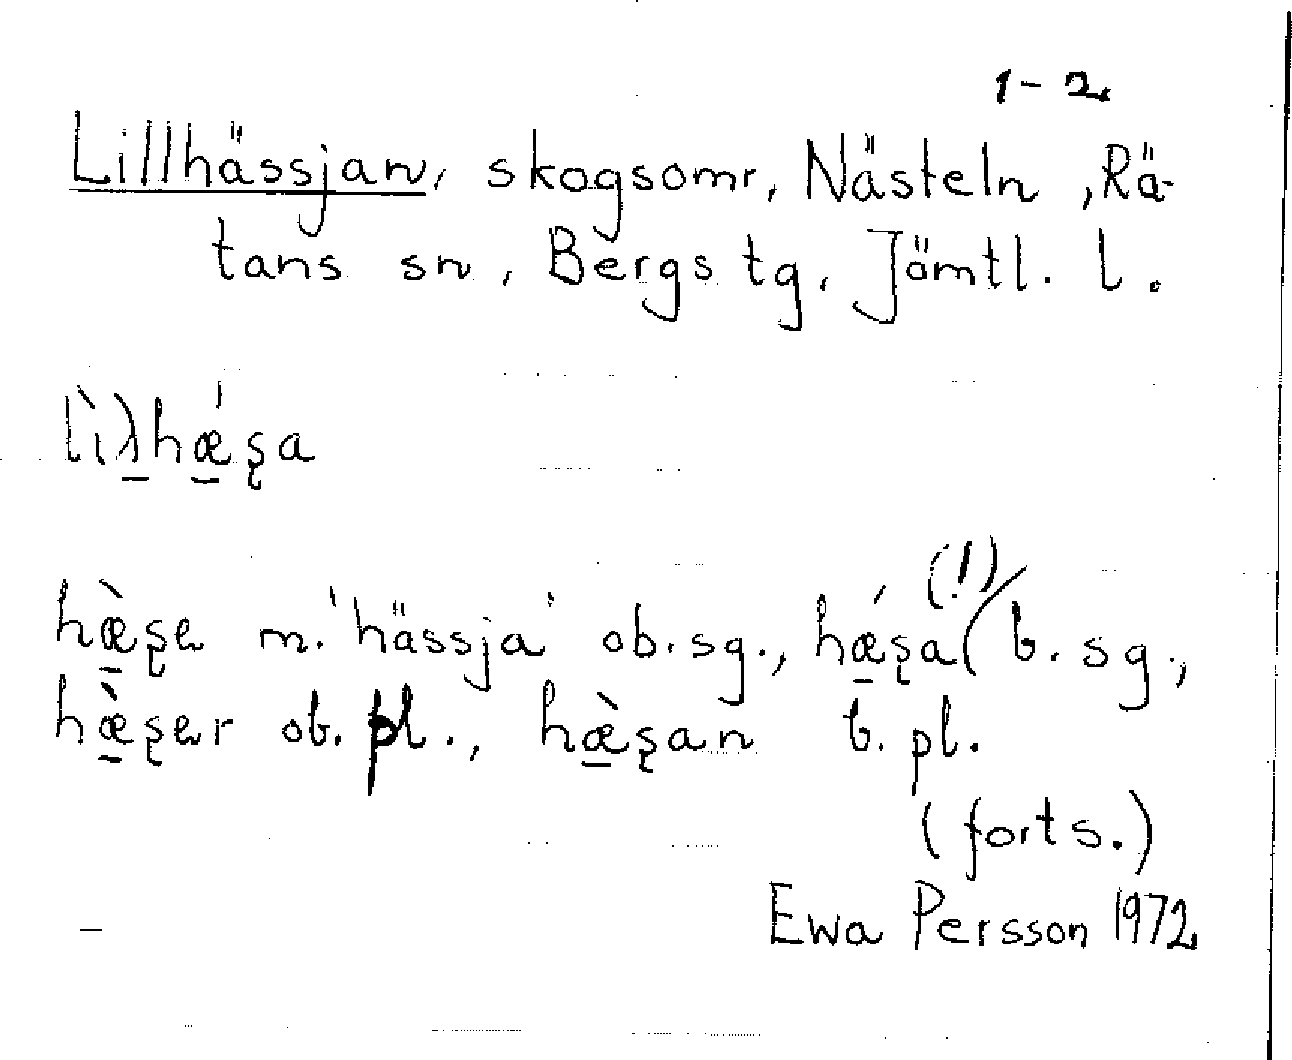 1-2.
Lillhässjan, skogsomr, Nästeln, Rä-
tans sn, Bergs tg, Jämtl. l.
lìλ̱hǽ̱ʂa
hæ̱̀ʂe m. 'hässja' ob. sg., hǽ̱ʂa (!) b. sg.,
hæ̱̀ʂer ob. pl., hæ̱̀ʂan b. pl.
(forts.)
Ewa Persson 1972